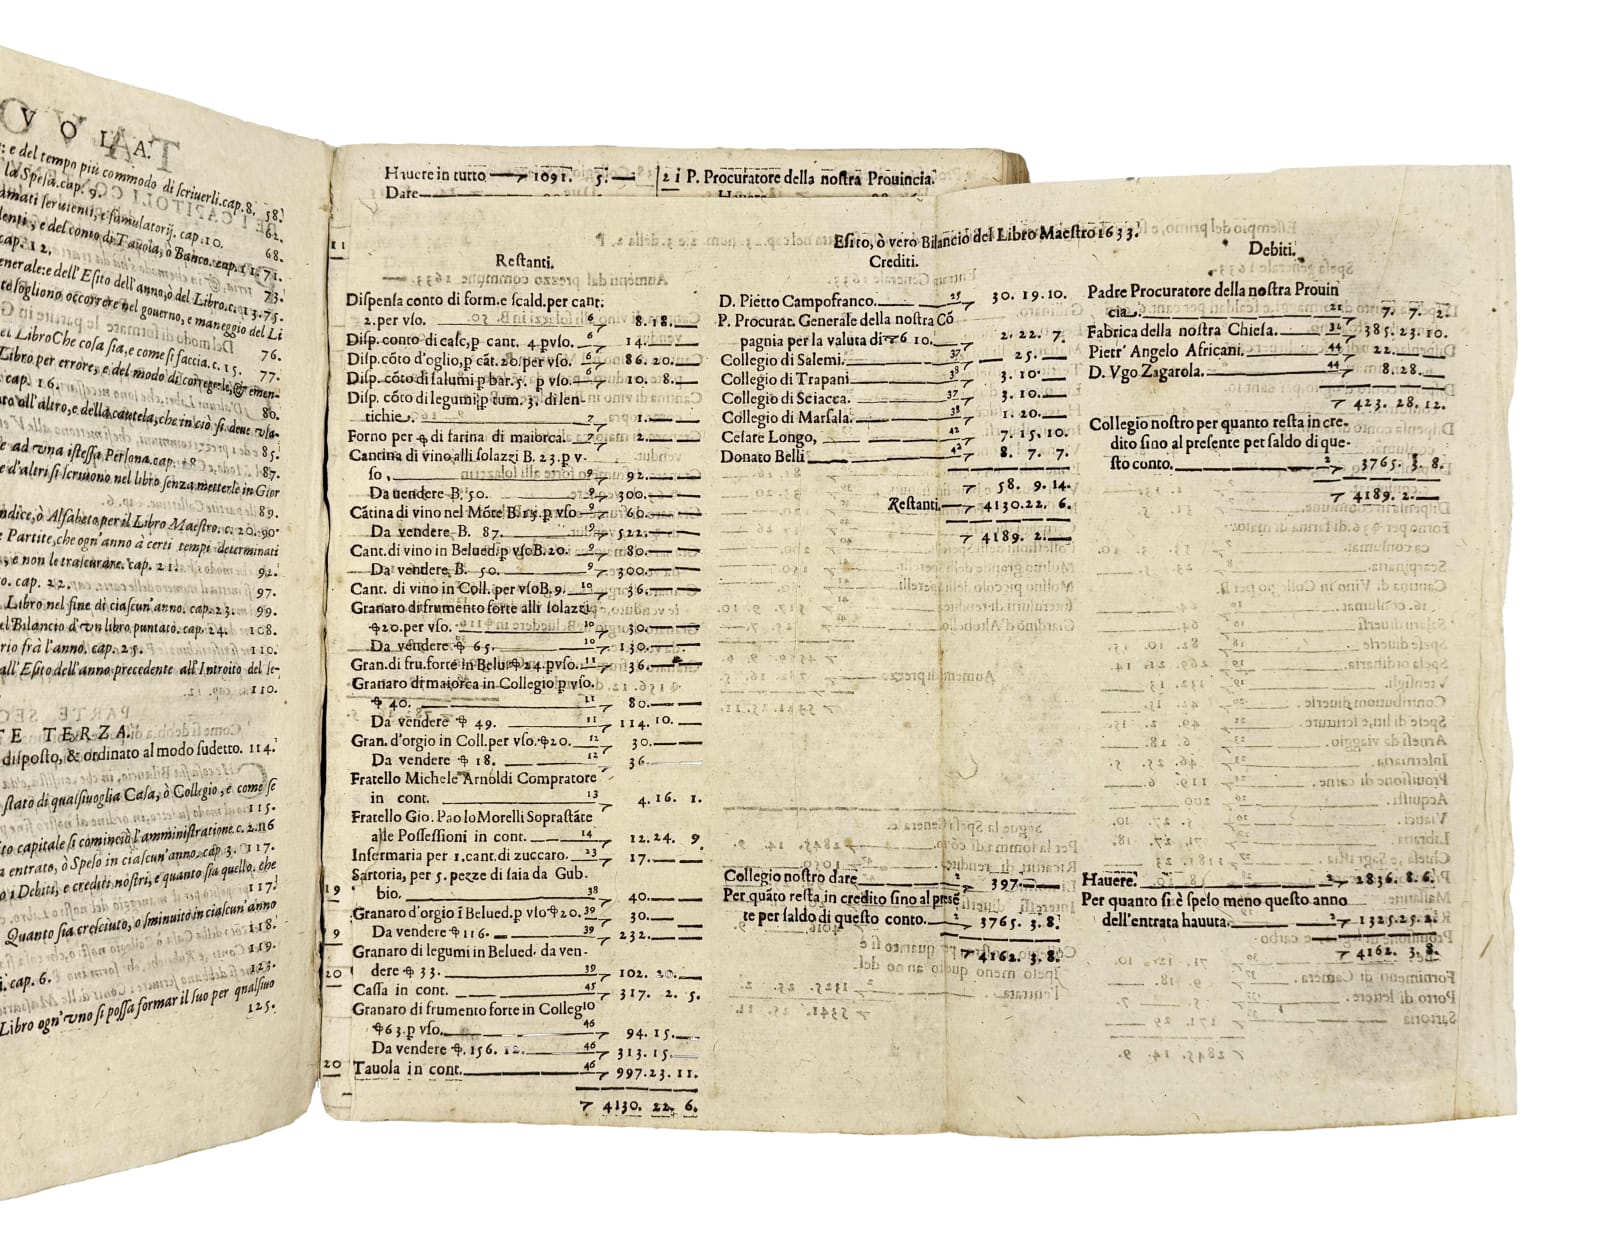 VOLA.
e del tempo più commodo di scriuerli.cap.8. 58.
la Spesa.cap. 9. 62.
amati seruienti, e famulatorij. cap.10. 68.
e del conto di Tauola, ò Banco. cap. 11. 71.
cap. 12. 73.
enerale:e dell'Esito dell'anno,ò del Libro.c.13.75.
te sogliono occorrere nel gouerno, e maneggio del Li
76.
el LibroChe cosa sia,e come si faccia. c. 15. 77.
Libro per errore, e del modo di correggerle,& emen-
cap. 16. 80.
all'altro,e della cautela,che in ciò si deue vsa-
85.
e ad vna istessa Persona.cap. 18. 87.
e d'altri,si scriuono nel libro senza metterle in Gior
89.
ndice,ò Alfabeto,per il Libro Maestro. c. 20. 90
e Partite,che ogn'anno à certi tempi determinati
, e non le trascurare. cap. 21. 92.
o. cap. 22. 97.
Libro nel fine di ciascun'anno. cap.23. 99.
el Bilancio d'vn libro puntato. cap. 24. 108.
rio frà l'anno. cap. 25. 110.
all'Esito dell'anno precedente all'Introito del se-
110.
TE TERZA.
disposto, & ordinato al modo sudetto. 114.
stato di qualsiuoglia Casa, ò Collegio, e come se
115.
ito capitale si cominciò l'amministratione.c. 2.116
a entrato, ò Speso in ciascun'anno. cap. 3. 117.
o i Debiti, e crediti nostri, e quanto sia quello, che
117.
Quanto sia cresciuto, o sminuito in ciascun'anno
118.
119.
i. cap. 6. 123.
Libro ogn'vno si possa formar il suo per qualsiuo
125.
Hauere in tutto 1091. 5. 21 P. Procuratore della nostra Prouincia.
Dare
Esito, ò vero Bilancio del Libro Maestro 1633.
11
Restanti.
Dispensa conto di form.e scald.per cant.
2.per vso. 6 8. 18.
Disp. conto di casc,p cant. 4. pvso. 6 14.
Disp. cōto d'oglio, p cāt. 20. per vso. 6 86. 20.
Disp. cōto di salumi p bar. 5. p vso. 6 10. 8.
Disp. cōto di legumi p tum. 3. di len-
tichie. 7 1.
Forno per di farina di maiorca. 7 2.
Cantina di vino alli solazzi B. 23. p v-
so, 9 92.
Da uendere B. 50. 9 300.
Cātina di vino nel Mōte B. 15. p vso 9 60.
Da vendere B. 87. 9 522.
Cant. di vino in Belued. p vso B. 20. 9 80.
Da vendere B. 50. 9 300.
Cant. di vino in Coll. per vso B. 9. 10 36.
Granaro di frumento forte alli solazzi
20. per vso. 10 30.
Da vendere 65. 10 130.
Gran. di fru. forte in Belu. 24. p vso. 11 36.
Granaro di maiorca in Collegio p vso.
40. 11 80.
Da vendere 49. 11 114. 10.
Gran. d'orgio in Coll. per vso. 20. 12 30.
Da vendere 18. 12 36.
Fratello Michele Arnoldi Compratore
in cont. 13 4. 16. 1.
Fratello Gio. Paolo Morelli Soprastāte
alle Possessioni in cont. 14 12. 24. 9
Infermaria per 1. cant. di zuccaro. 23 17.
Sartoria, per 5. pezze di saia da Gub-
19 bio. 38 40.
Granaro d'orgio ī Belued. p vso 20. 39 30.
9 Da vendere 116. 39 232.
Granaro di legumi in Belued. da ven-
20 dere 33. 39 102. 20.
Cassa in cont. 45 317. 2. 5.
Granaro di frumento forte in Colleg 10
63. p vso. 46 94. 15.
Da vendere . 156. 12. 46 313. 15.
20 Tauola in cont. 46 997. 23. 11.
4130. 22. 6.
Crediti.
D. Piétto Campofranco. 25 30. 19. 10.
P. Procurat. Generale della nostra Cō
pagnia per la valuta di 6 10. 2. 22. 7.
Collegio di Salemi. 37 25.
Collegio di Trapani 38 3. 10.
Collegio di Sciacca. 37 3. 10.
Collegio di Marsala. 38 1. 20.
Cesare Longo, 42 7. 15. 10.
Donato Belli 42 8. 7. 7.
58. 9. 14.
Restanti. 4130. 22. 6.
4189. 2.
Collegio nostro dare 2 397.
Per quāto resta in credito sino al presē
te per saldo di questo conto. 2 3765. 3. 8.
4162. 3. 8.
Debiti.
Padre Procuratore della nostra Prouin
cia. 21 7. 7. 2.
Fabrica della nostra Chiesa. 32 385. 23. 10.
Pietr' Angelo Africani. 44 22.
D. Vgo Zagarola. 44 8. 28.
423. 28. 12.
Collegio nostro per quanto resta in cre-
dito sino al presente pet saldo di que-
sto conto. 2 3765. 3. 8.
4189. 2.
Hauere. 2 2836. 8. 6.
Per quanto si è speso meno questo anno
dell'entrata hauuta. 2 1325. 25. 2.
4162. 3. 8.